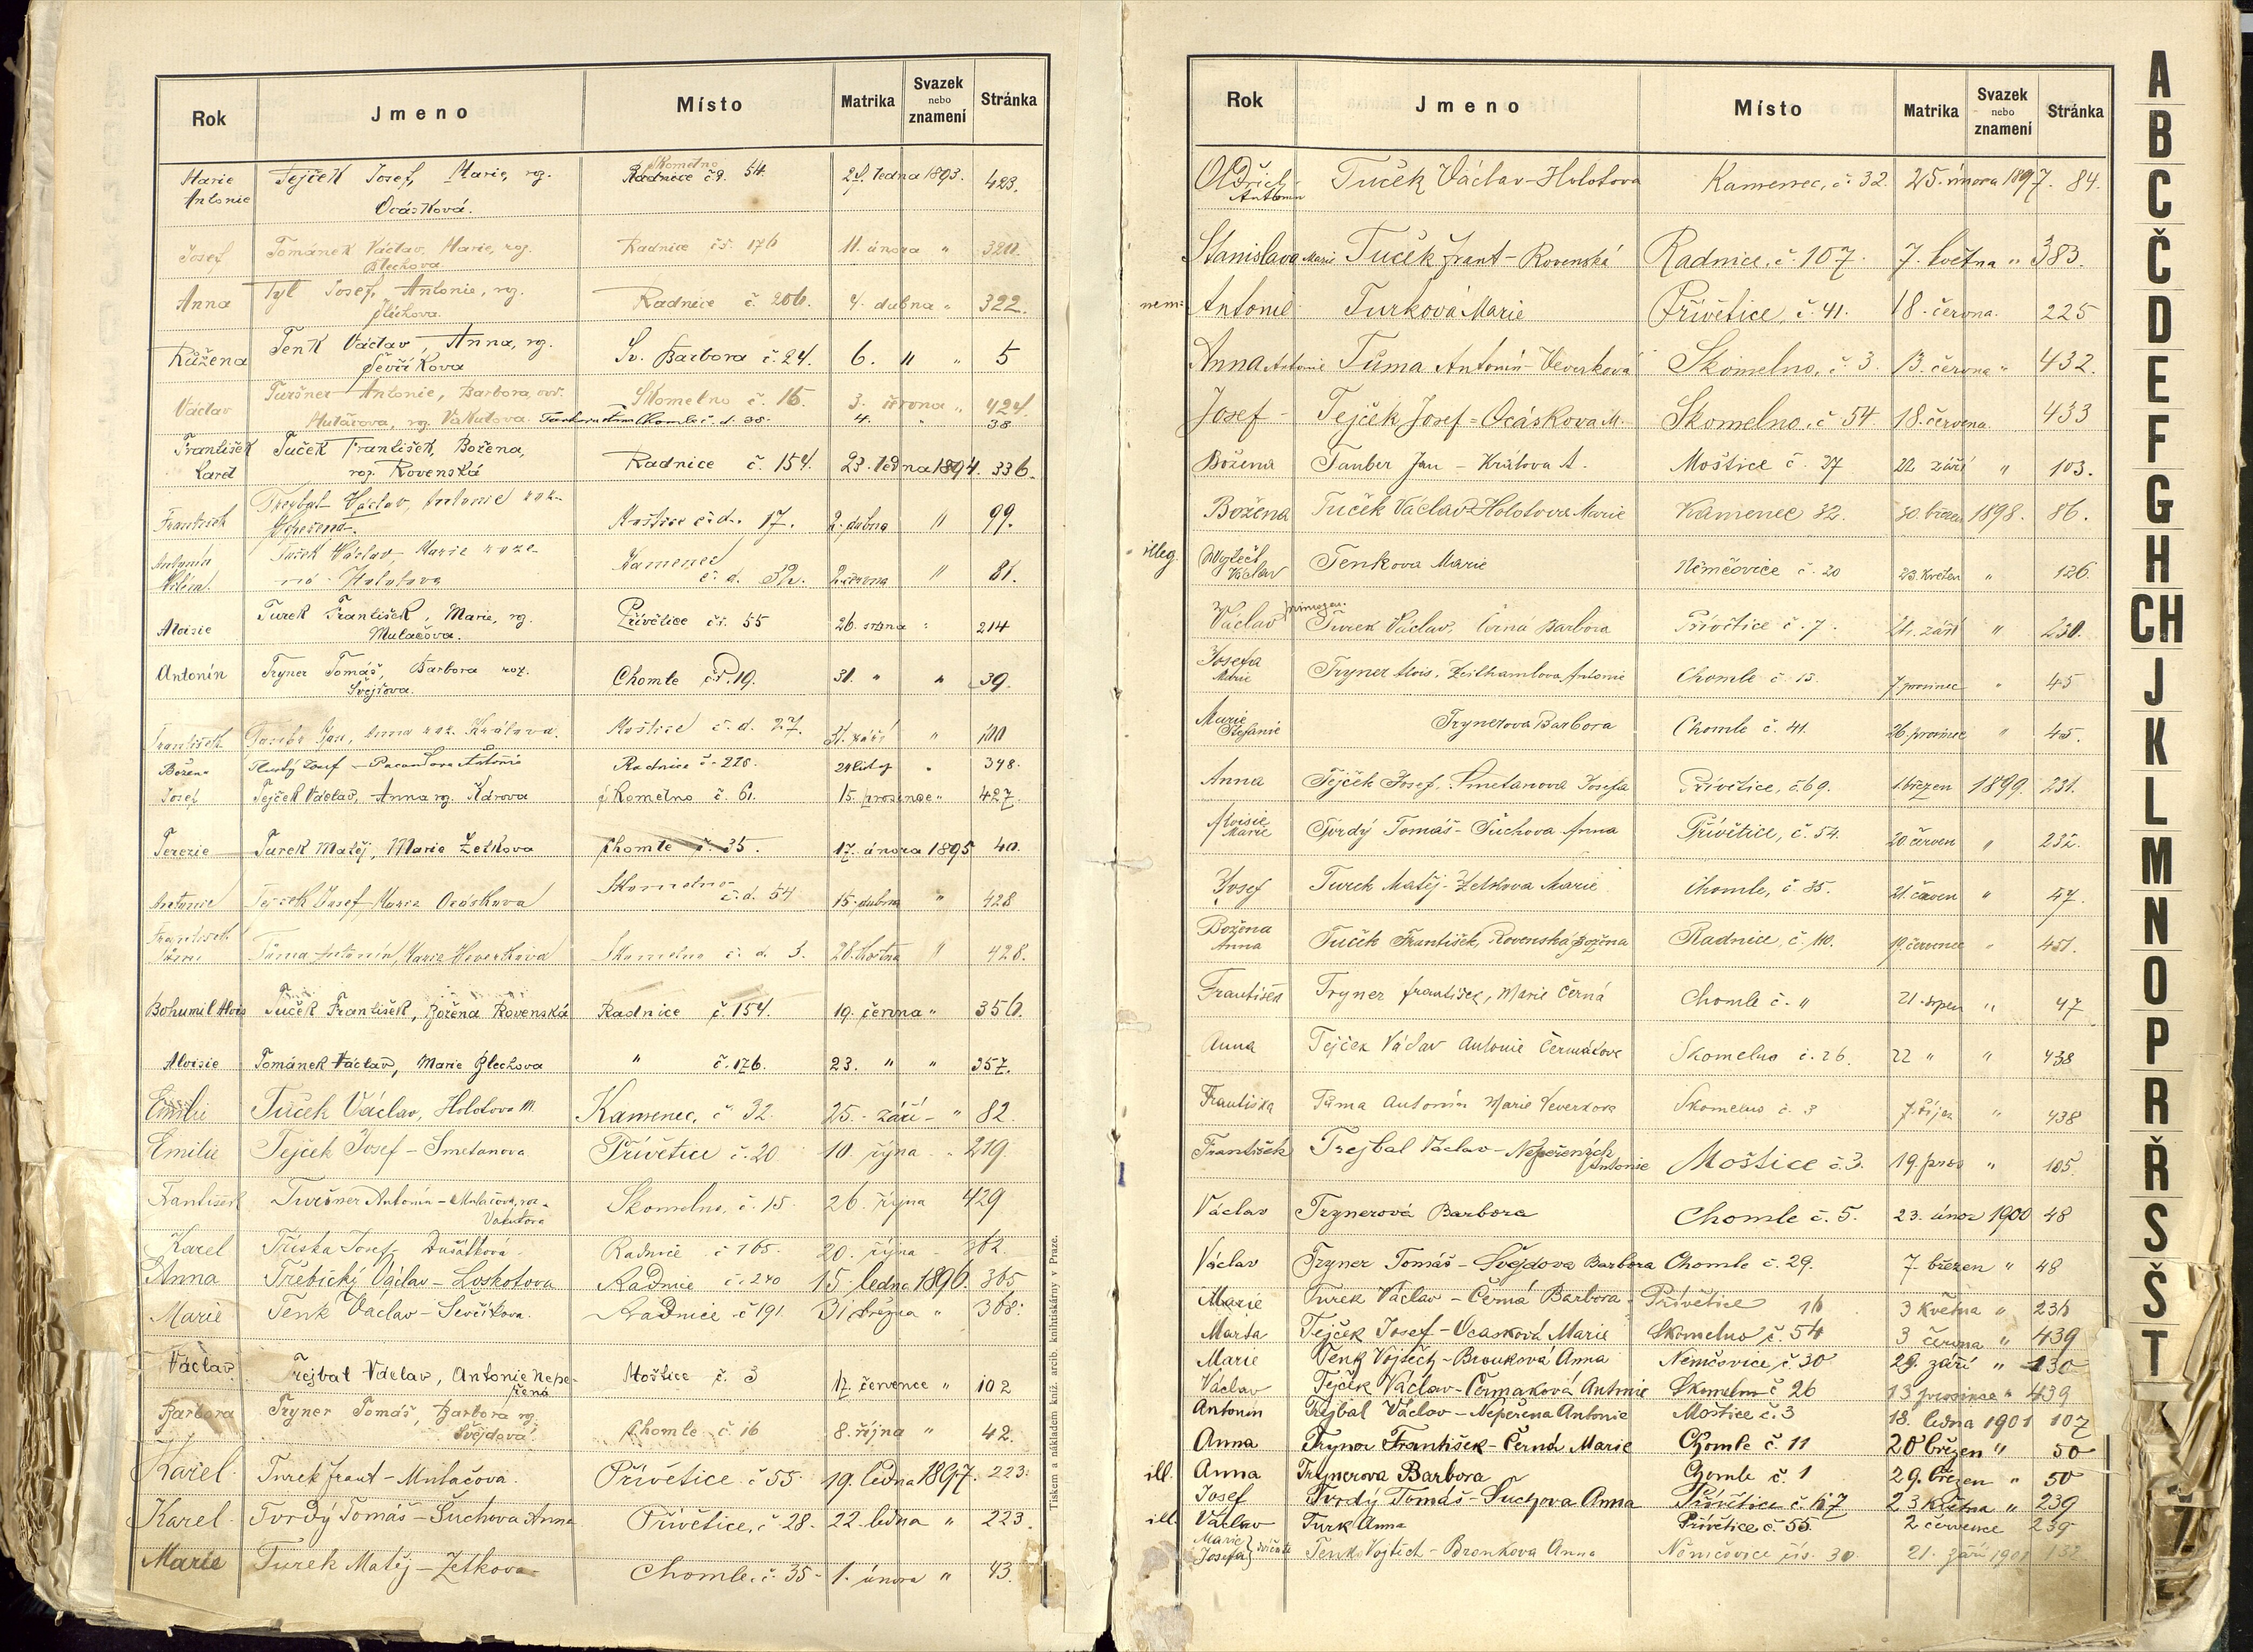 Rok Jmeno Místo Matrika Svazek nebo znamení Stránka
Marie Tejček Josef, Marie, rg. Skomelno 54. ledna 1893. 423.
Antonie Ocásková.
Josef Tománek Václav, Marie, roz. Radnice čs. 176 11. února " 320.
Blechova
Anna Tyl Josef, Antonie, rg. Radnice č. 206. 4. dubna " 322.
Růžena Tenk Václav, Anna, rg. Sv. Barbora č. 24. 6. " " 5
Ševčíkova
Václav Turšner Antonie, Barbora, Skomelno č. 15. 3. června " 424.
rg. Vakutova. Chomle č. d. 38. 4. " 38
František Tuček František, Božena, Radnice č. 154. 23. ledna 1894. 336.
Karel roz. Rovenská
František Trejbal Václav, Antonie roz. Moštice č. d. 17. 2. dubna " 99.
Antonín Tuček Václav, Marie roze- Kamenec
Vilém. ná - Holotova č. d. 32. 2. června " 81.
Aloisie Turek František, Marie, rg. Přívětice čs. 55 26. srpna " 214
Mulačova.
Antonín Tryner Tomáš, Barbora roz. Chomle čp. 19. 31. " " 39.
František Tauber Jan, Anna roz. Králova. Moštice č. d. 27. 31. září " 100
Božena Josef - Antonie Radnice č. 228. 24 listop " 348.
Josef Tejček Václav, Anna rg. Skomelno č. 61. 15. prosince " 427.
Terezie Turek Matěj, Marie Zetkova Chomle č. 35. 17. února 1895 40.
Antonie Tejček Josef, Marie Ocáskova Skomelno
č. d. 54 15. dubna " 428
František Tůma Antonín, Marie Veverkova Skomelno č. d. 3. 28. května " 428.
Bohumil Alois Tuček František, Božena Rovenská Radnice č. 154. 19. června " 356.
Aloisie Tománek Václav, Marie Blechova " č. 176. 23. " " 357.
Emilie Tuček Václav, Holotova M. Kamenec, č. 32. 25. září - " 82.
Emilie Tejček Josef - Smetanova Přívětice č. 20 10. října " 219
František Turšner Antonín - Mulačova, roz. Skomelno, č. 15. 26. října 429
Vakutova
Karel Tříska Josef - Dušátková Radnice č. 165. 20. října - 362.
Anna Třebický Václav - Loskotova Radnice č. 240 15. ledna 1896. 365
Marie Tenk Vaclav - Ševčíkova. Radnice č. 191 31 března " 368.
Václav Trejbal Václav, Antonie Nepe- Moštice č. 3 17. července " 102
řená
Barbora Tryner Tomáš, Barbora rg. Chomle č. 16 8. října " 42.
Švejdová
Karel. Turek Frant - Mulačova. Přívětice č. 55. 19. ledna 1897. 223.
Karel. Tvrdý Tomáš - Šuchova Anna Přívětice, č. 28. 22. ledna " 223.
Marie Turek Matěj - Zetkova Chomle, č. 35 - 1. února " 43.
Tiskem a nákladem kníž. arcib. knihtiskárny v Praze.
Rok Jmeno Místo Matrika Svazek nebo znamení Stránka
Oldřich - Tuček Václav - Holotova Kamenec, č. 32. 25. února 1897. 84.
Antonín
Stanislava Marie Tuček Frant - Rovenská Radnice, č. 107. 7. května " 383.
nem. Antonie Turková Marie Přívětice, č. 41. 18. června. 225
Anna Antonie Tůma Antonín - Veverková Skomelno, č. 3. 13. června " 432.
Josef - Tejček Josef = Ocáskova M. Skomelno, č. 54. 18. června. 433
Božena Tauber Jan - Králova A. Moštice č. 37 22. září " 103.
Božena Tuček Václav Holotova Marie Kamenec 32. 30. březen 1898. 86.
illeg. Vojtěch Tenkova Marie Němčovice č. 20 23. květen " 126.
Václav
Václav Turek Václav, Černá Barbora Přívětice č. 7. 21. září " 230.
Josefa Tryner Alois, Zeithamlova Antonie Chomle č. 13. 7. prosinec " 45
Marie
Marie Trynerova Barbora Chomle č. 41. 26. prosinec " 45.
Stefanie
Anna Tejček Josef, Smetanova Josefa Přívětice, č. 69. 1. březen 1899. 231.
Aloisie Tvrdý Tomáš - Šuchova Anna Přívětice, č. 54. 20. červen " 232.
Marie
Josef Turek Matěj - Zetkova Marie Chomle, č. 35. 21. červen " 47.
Božena Tuček František, Rovenská Božena Radnice, č. 110. 19. červenec " 451.
Anna
František Tryner František, Marie Černá Chomle č. 11 21. srpen " 47
Anna Tejček Václav Antonie Čermákova Skomelno č. 26. 22 " " 438
Františka Tůma Antonín Marie Veverkova Skomelno č. 3 7. říjen " 438
František Trejbal Václav - Nepřených Moštice č. 3. 19. pros " 105.
Antonie
Václav Trynerová Barbora Chomle č. 5. 23. únor 1900 48
Václav Tryner Tomáš - Švejdova Barbora Chomle č. 29. 7 březen " 48
Marie Turek Václav - Černá Barbora Přívětice 16 3 května " 236
Marta Tejček Josef - Ocasková Marie Skomelno č. 54 3 června " 439
Marie Tenk Vojtěch - Brouková Anna Němčovice č. 30 29. září " 130
Václav Tejček Václav - Čermaková Antonie Skomelno č. 26 13 prosince " 439
Antonín Trejbal Václav - Nepřena Antonie Moštice č. 3 18. ledna 1901 107
Anna Tryner František - Černá Marie Chomle č. 11 20 březen " 50
ill. Anna Trynerova Barbora Chomle č. 1 29. březen " 50
Josef Tvrdý Tomáš - Suchova Anna Přívětice č. 67 23 května " 239
ill. Václav Turk Anna Přívětice č. 55. 2 července 239
Marie
Josefa } dvojčata Tenk Vojtěch - Bronkova Anna Němčovice čís. 30. 21. září 1901 132
A
B
C
Č
D
E
F
G
H
CH
J
K
L
M
N
O
P
R
Ř
S
Š
T